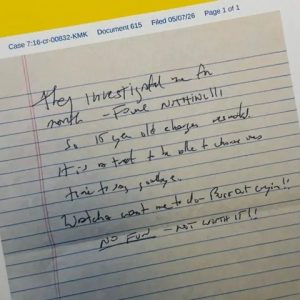 Case 7:16-cr-00832-KMK Document 615 Filed 05/07/26 Page 1 of 1
They investigated me for
month - Found NOTHING!!!
So 15 year old charges
It is a treat to be able to choose
time to say goodbye.
want me to do - Burst out cryin!!
NO FUN - NOT WORTH IT!!